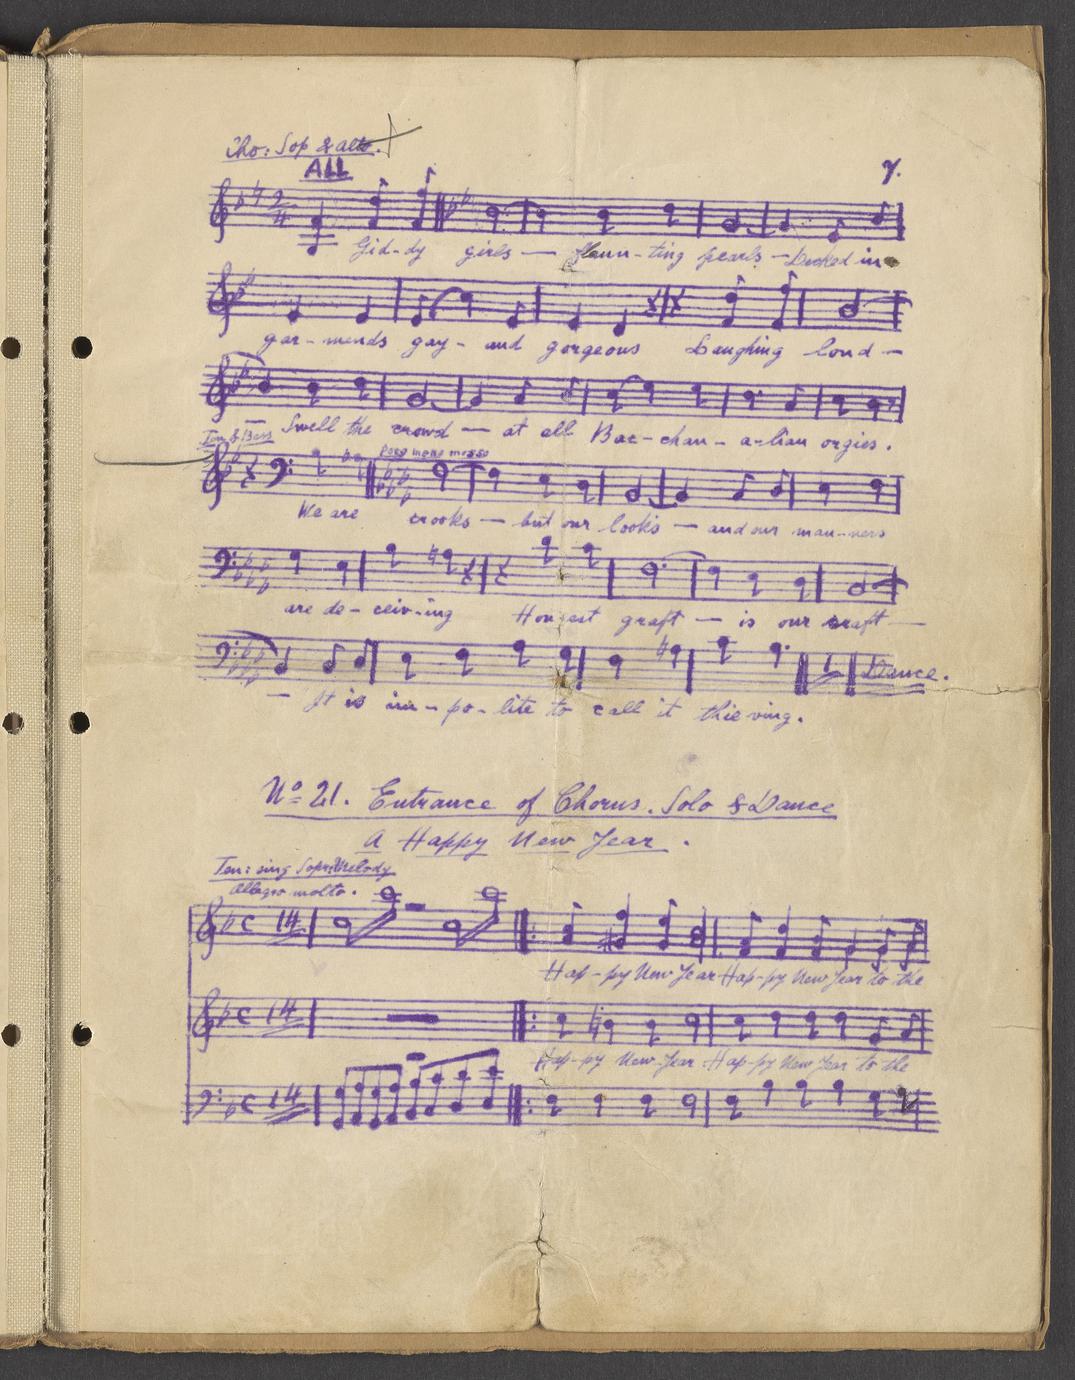 Cho: Sop & alto.
ALL
7.
Gid-dy girls — flaun-ting pearls — Decked in
gar-mends gay- and gorgeous Laughing loud —
Swell the crowd — at all Bac-chan-a-lian orgies.
Ten & Bass
Poco meno mosso
We are crooks — but our looks — and our man-ners
are de-ceiv-ing Honest graft — is our craft —
— It is im-po-lite to call it thieving.
Dance.
No 21. Entrance of Chorus. Solo & Dance
A Happy New Year.
Ten: sing Sopr: Melody
Allegro molto.
14
Hap-py New Year Hap-py New Year to the
14
Hap-py New Year Hap-py New Year to the
14